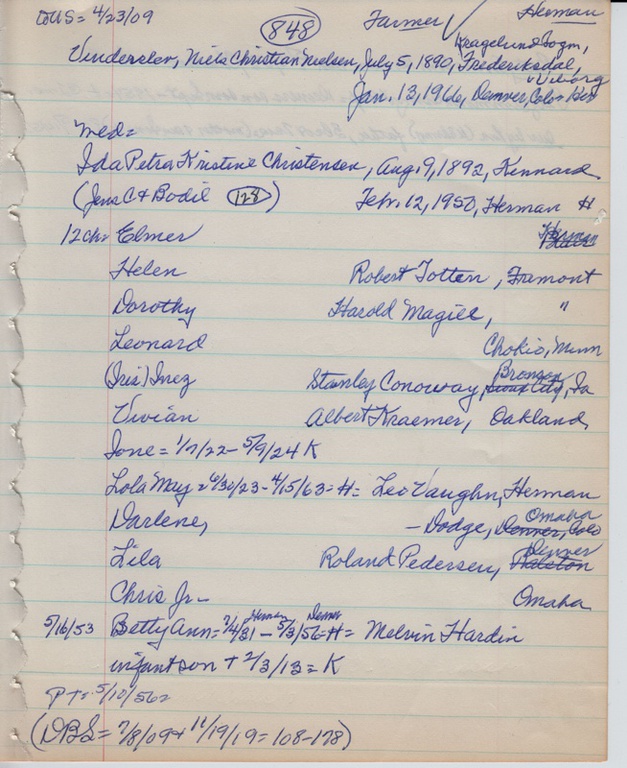 US = 4/23/09 848 Farmer ✓ Herman
Kragelund Sogn,
Vinderslev, Niels Christian Nielsen, July 5, 1890, Frederiksdal,
Viborg
Jan. 13, 1966, Denver, Colo =
med =
Ida Petra Kristine Christensen, Aug. 9, 1892, Kennard
(Jens C + Bodil 128) Feb. 12, 1950, Herman #
12 ch = Elmer Herman
Helen Robert Totten, Fremont
Dorothy Harold Magill, "
Leonard Chokio, Minn
Bronson
(Iris) Inez Stanley Conoway, Sioux City, Ia
Vivian Albert Kraemer, Oakland,
Ione = 1/7/22 - 5/9/24 K
Lola May = 6/30/23 - 4/15/63 = # = Leo Vaughn, Herman
Omaha
Darlene, - Dodge, Denver, Colo
Denver
Lila Roland Pedersen, Ralston
Chris Jr - Omaha
Herman Denver
5/16/53 Betty Ann = 7/4/31 - 5/3/56 = # = Melvin Hardin
infant son + 2/3/13 = K
PT = 5/10/56 =
(DBS = 7/8/09 + 11/19/19 = 108-178)